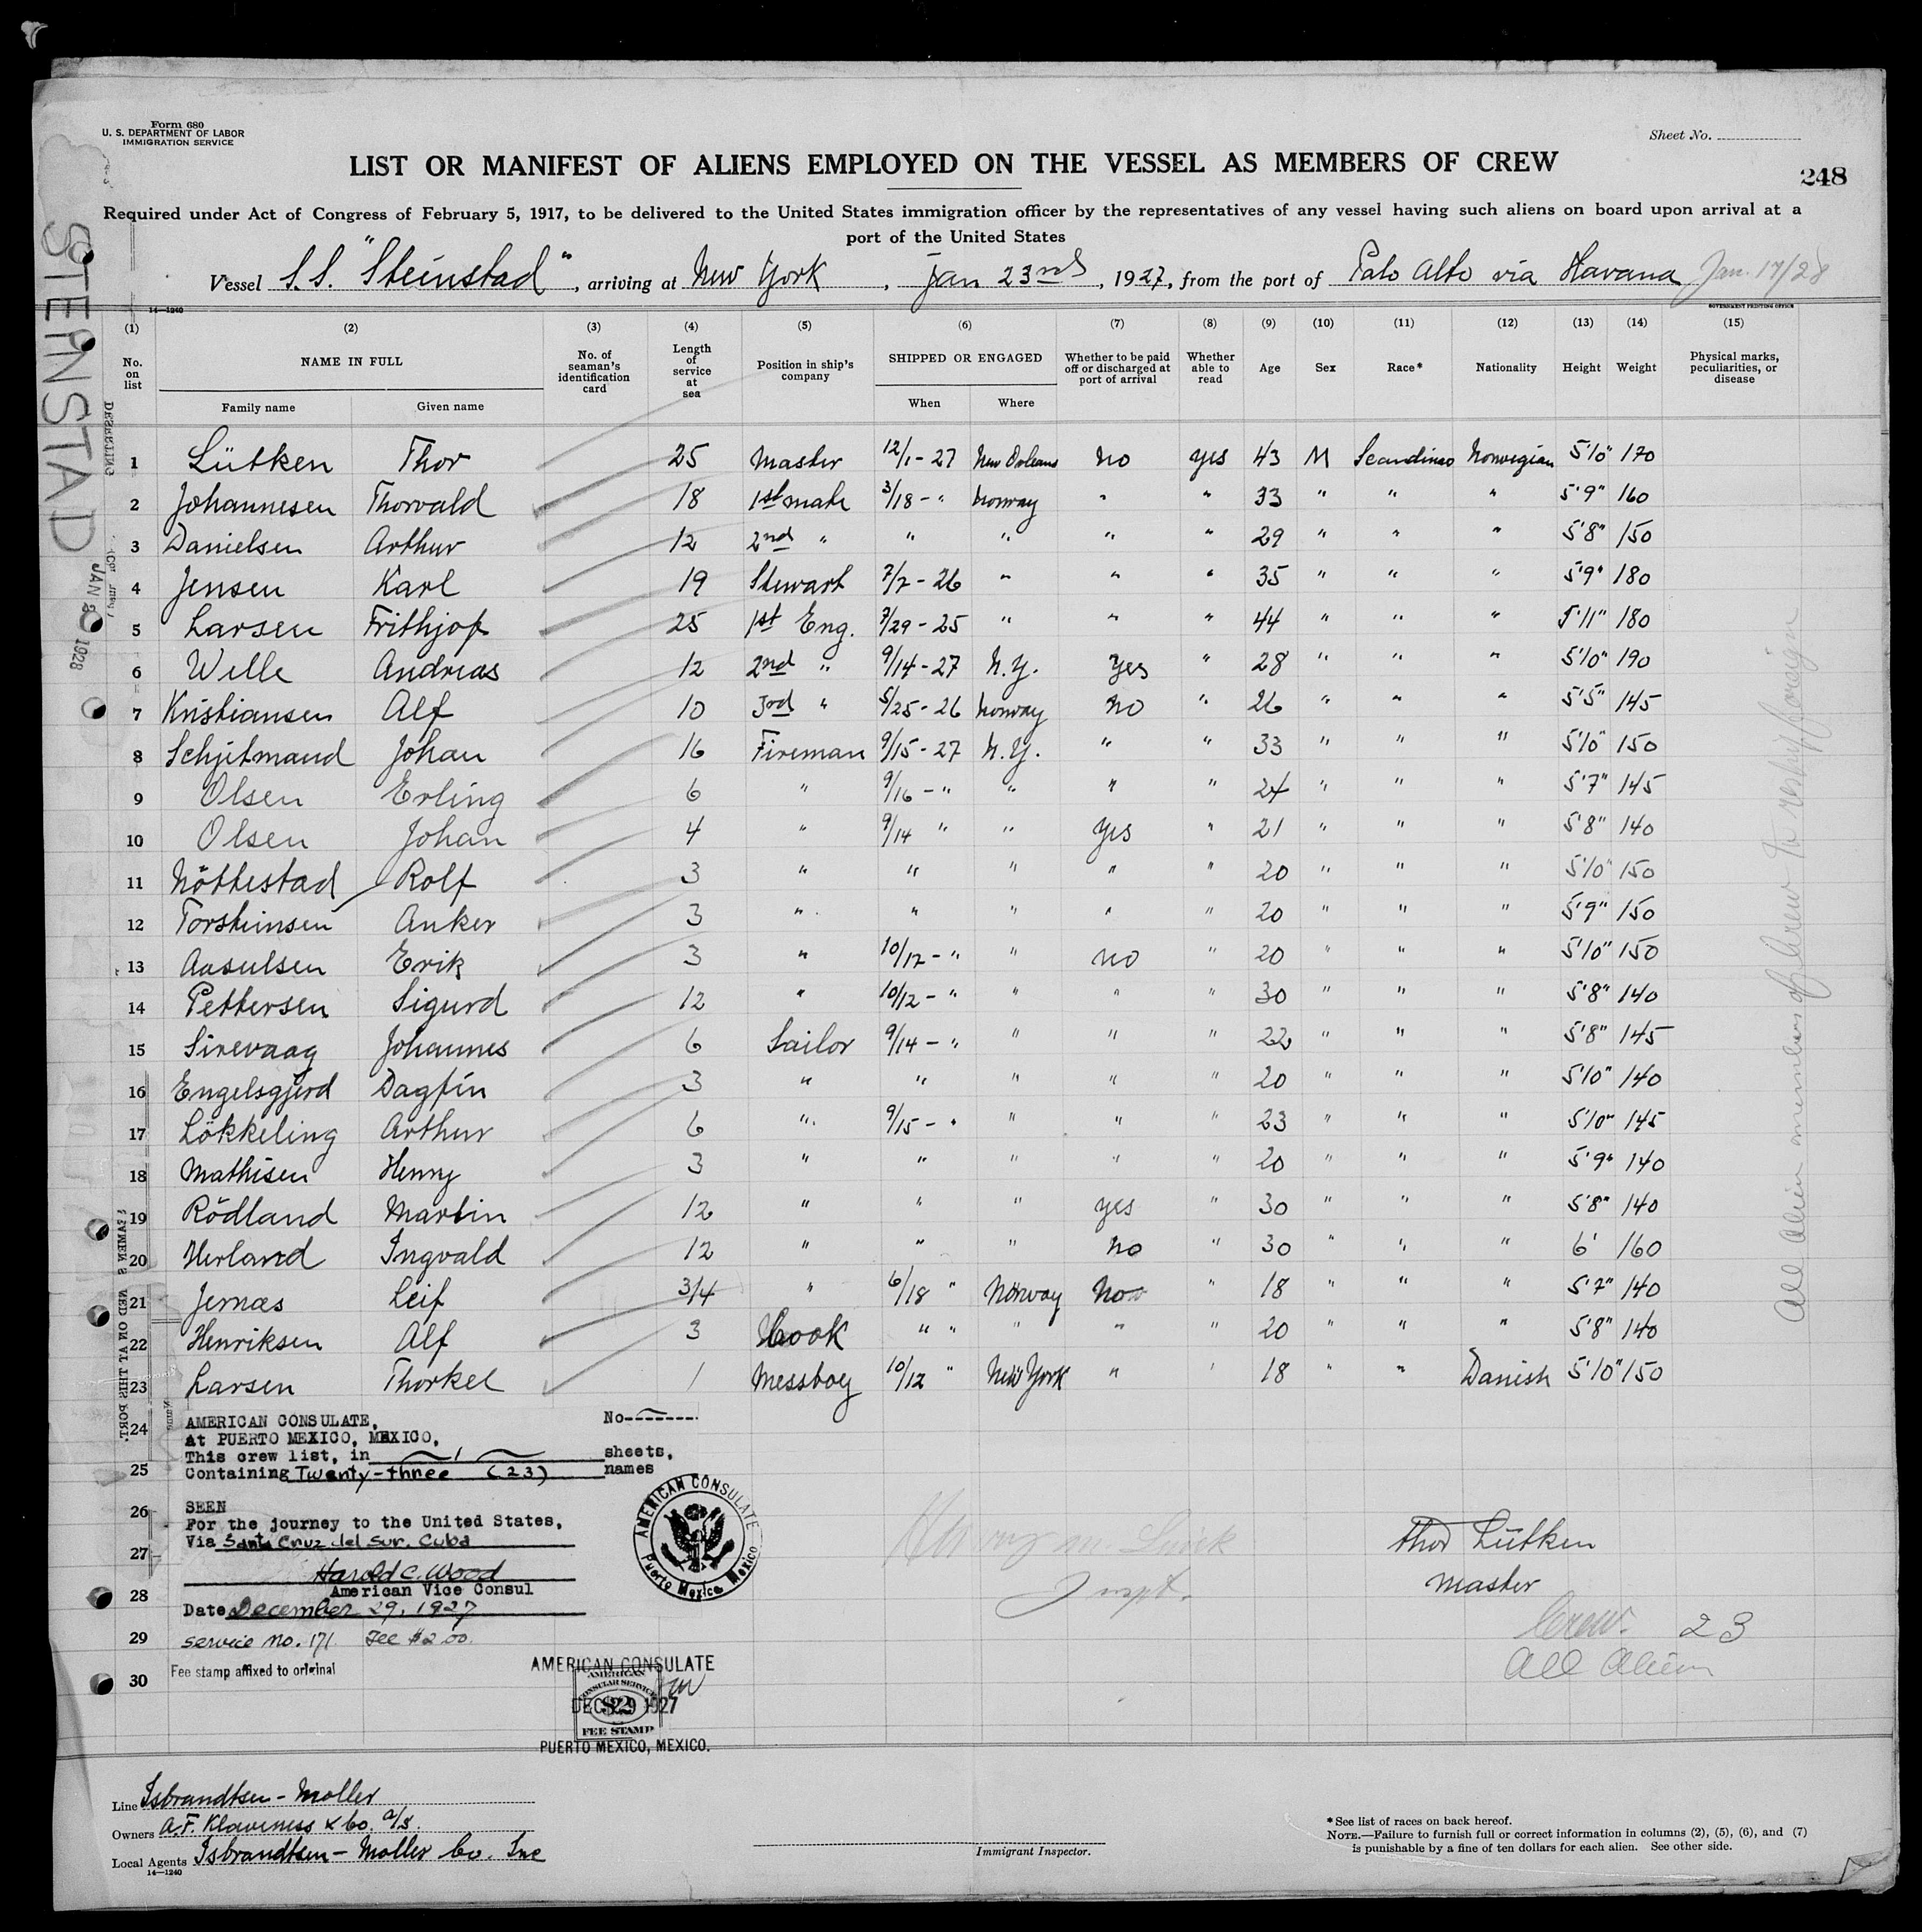 Form 680
U. S. DEPARTMENT OF LABOR
IMMIGRATION SERVICE
Sheet No.
LIST OR MANIFEST OF ALIENS EMPLOYED ON THE VESSEL AS MEMBERS OF CREW
248
Required under Act of Congress of February 5, 1917, to be delivered to the United States immigration officer by the representatives of any vessel having such aliens on board upon arrival at a
port of the United States
Vessel S.S. "Steinstad", arriving at New York, Jan 23rd, 1927, from the port of Palo Alto via Havana Jan. 17/28
14—1240 GOVERNMENT PRINTING OFFICE
(1) (2) (3) (4) (5) (6) (7) (8) (9) (10) (11) (12) (13) (14) (15)
No. on list NAME IN FULL No. of seaman's identification card Length of service at sea Position in ship's company SHIPPED OR ENGAGED Whether to be paid off or discharged at port of arrival Whether able to read Age Sex Race* Nationality Height Weight Physical marks, peculiarities, or disease
Family name Given name When Where
1 Lütken Thor 25 Master 12/1-27 New Orleans No yes 43 M Scandinav Norwegian 5'10" 170
2 Johannesen Thorvald 18 1st mate 3/18-" Norway " " 33 " " " 5'9" 160
3 Danielsen Arthur 12 2nd " " " " " 29 " " " 5'8" 150
4 Jensen Karl 19 Stewart 7/7-26 " " " 35 " " " 5'9" 180
5 Larsen Frithjof 25 1st Eng. 7/29-25 " " " 44 " " " 5'11" 180
6 Wille Andreas 12 2nd " 9/14-27 N.Y. Yes " 28 " " " 5'10" 190
7 Kristiansen Alf 10 3rd " 5/25-26 Norway No " 26 " " " 5'5" 145
8 Schjitmand Johan 16 Fireman 9/15-27 N.Y. " " 33 " " " 5'10" 150
9 Olsen Erling 6 " 9/16-" " " " 24 " " " 5'7" 145
10 Olsen Johan 4 " 9/14 " " Yes " 21 " " " 5'8" 140
11 Nöttestad Rolf 3 " " " " " 20 " " " 5'10" 150
12 Torsteinsen Anker 3 " " " " " 20 " " " 5'9" 150
13 Aasulsen Erik 3 " 10/12-" " No " 20 " " " 5'10" 150
14 Pettersen Sigurd 12 " 10/12-" " " " 30 " " " 5'8" 140
15 Sirevaag Johannes 6 Sailor 9/14-" " " " 22 " " " 5'8" 145
16 Engelsgjerd Dagfin 3 " " " " " 20 " " " 5'10" 140
17 Lökkeling Arthur 6 " 9/15-" " " " 23 " " " 5'10" 145
18 Mathisen Henry 3 " " " " " 20 " " " 5'9" 140
19 Rödland Martin 12 " " " yes " 30 " " " 5'8" 140
20 Herland Ingvald 12 " " " No " 30 " " " 6' 160
21 Jernæs Leif 3/4 " 6/18 " Norway No " 18 " " " 5'7" 140
22 Henriksen Alf 3 Cook " " " " " 20 " " " 5'8" 140
23 Larsen Thorkel 1 Messboy 10/12 " New York " " 18 " " Danish 5'10" 150
24
25
26
27
28
29
30
AMERICAN CONSULATE, No
At PUERTO MEXICO, MEXICO,
This crew list, in 1 sheets,
Containing Twenty-three (23) names
SEEN
For the journey to the United States,
Via Santa Cruz del Sur, Cuba
Harold C. Wood
American Vice Consul
Date December 29, 1927
service no. 171. Fee $2.00.
Fee stamp affixed to original
AMERICAN CONSULATE
Puerto Mexico, Mexico
AMERICAN CONSULATE
AMERICAN
CONSULAR SERVICE
$2
DEC 29 1927
FEE STAMP
PUERTO MEXICO, MEXICO.
Inspt.
Thor Lütken
Master
Crew. 23
All Alien
All Alien members of Crew to reship foreign
STEINSTAD
1928
Line Isbrandtsen-Moller
Owners A.F. Klaveness & Co. a/s.
Local Agents Isbrandtsen-Moller Co. Inc
14—1240
Immigrant Inspector.
*See list of races on back hereof.
NOTE.—Failure to furnish full or correct information in columns (2), (5), (6), and (7)
is punishable by a fine of ten dollars for each alien. See other side.